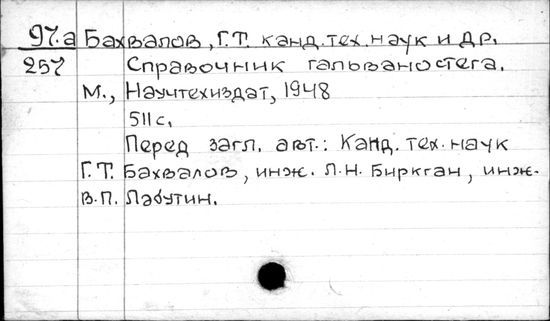 97.а Бахвалов, Г.Т. канд.тех.наук и др.
257 Справочник гальваностега.
М., Научтехиздат, 1948
511 с.
Перед загл. авт.: Канд. тех. наук
Г.Т. Бахвалов, инж. Л.Н. Биркган, инж.
В.П. Лабутин.